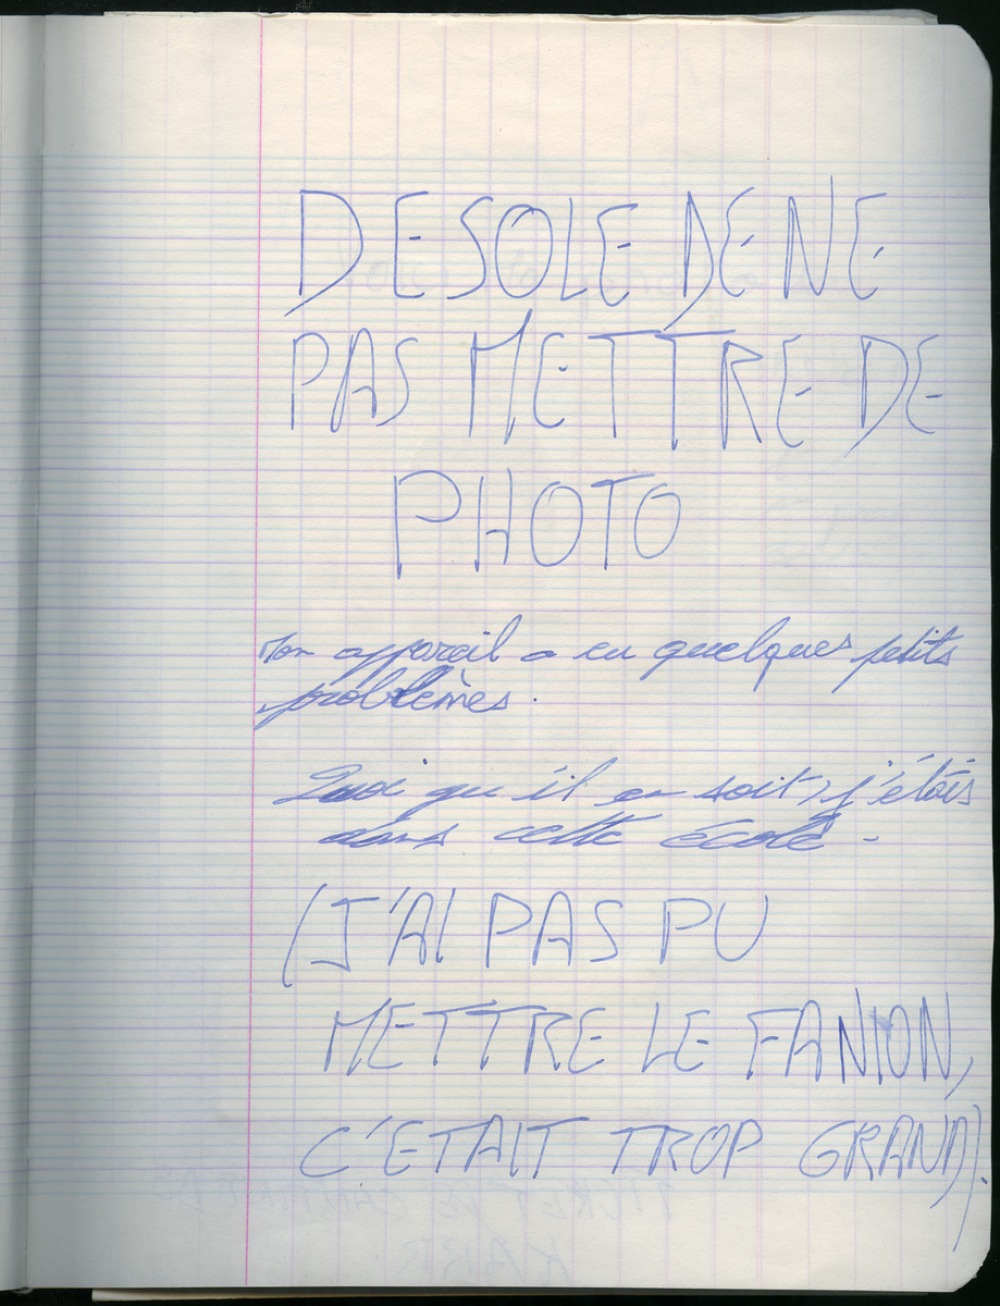 DESOLE DE NE
PAS METTRE DE
PHOTO
Mon appareil a eu quelques petits
problèmes.
Quoi qu'il en soit, j'étais
dans cette école.
(J'AI PAS PU
METTRE LE FANION,
C'ETAIT TROP GRAND).
TICKET DE CANTINE